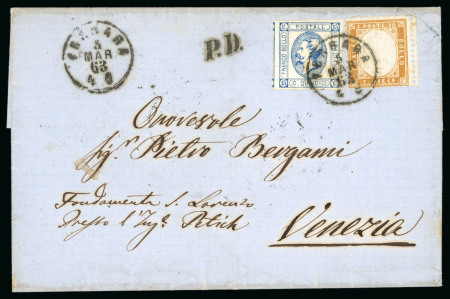 FERRARA
5
MAR
63
4 S
P.D.
FRANCO BOLLO
POSTALE
C. QUINDICI
FERRARA
5
MAR
Onorevole
Sig.r Pietro Bergami
Fondamenta S. Lorenzo
Presso l'Ing.
Venezia